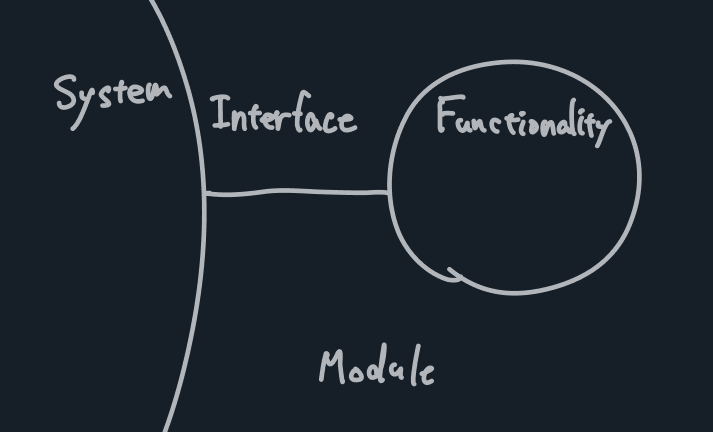 System
Interface
Functionality
Module